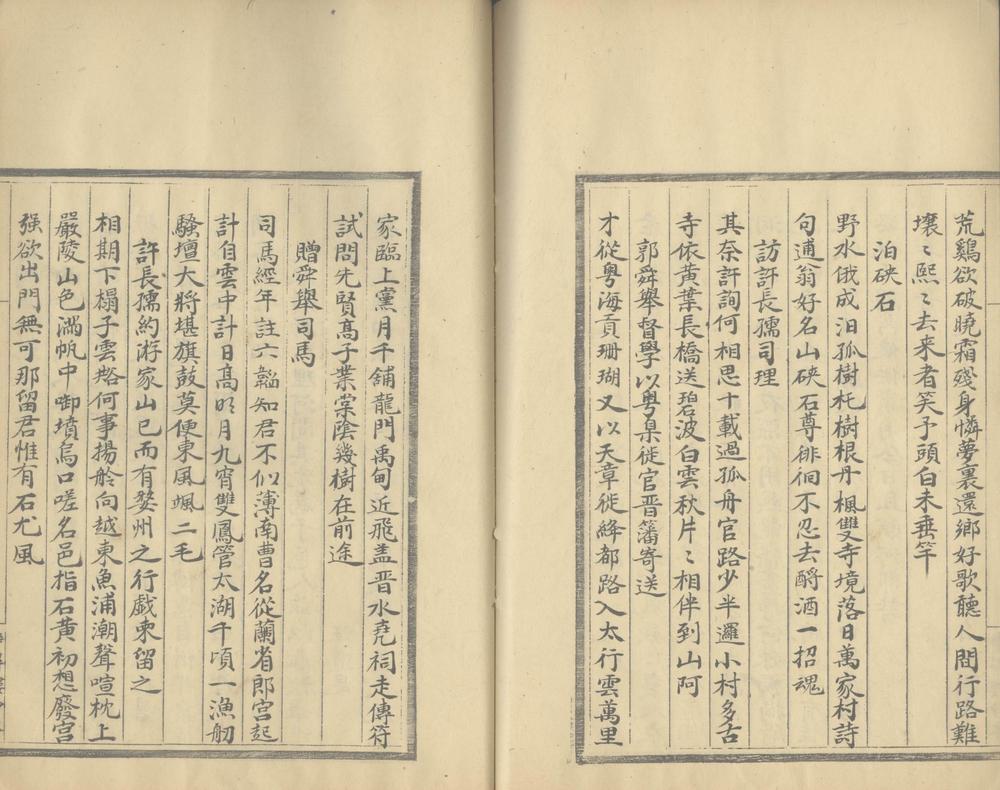 荒鷄欲破曉霜殘身憐夢裏還鄉好歌聽人間行路難
壤〻熙〻去来者笑予頭白未垂竿
泊硤石
野水俄成汨孤樹杔樹根丹楓雙寺境落日萬家村詩
句逋翁好名山硤石尊徘徊不忍去酹酒一招魂
訪許長孺司理
其奈許詢何相思十載過孤舟官路少半邏小村多古
寺依黃葉長橋送碧波白雲秋片〻相伴到山阿
郭舜舉督學以粵臬徙官晋藩寄送
才從粵海貢珊瑚又以天章徙絳都路入太行雲萬里
家臨上黨月千舖龍門禹甸近飛盖晋水堯祠走傳符
試問先賢髙子業棠陰幾樹在前途
贈舜舉司馬
司馬經年註六韜知君不似薄南曹名從蘭省郎官起
計自雲中計日髙明月九霄雙鳳管太湖千頃一漁舠
騷壇大將堪旗鼓莫便東風颯二毛
許長孺約游家山已而有婺州之行戱柬留之
相期下榻子雲谿何事揚舲向越東魚浦潮聲喧枕上
嚴陵山色滿帆中啣墳烏口嗟名邑指石黃初想廢宫
强欲出門無可那留君惟有石尤風